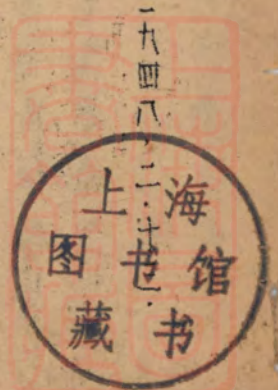 一九四八，二·十
上海
图书馆
藏书